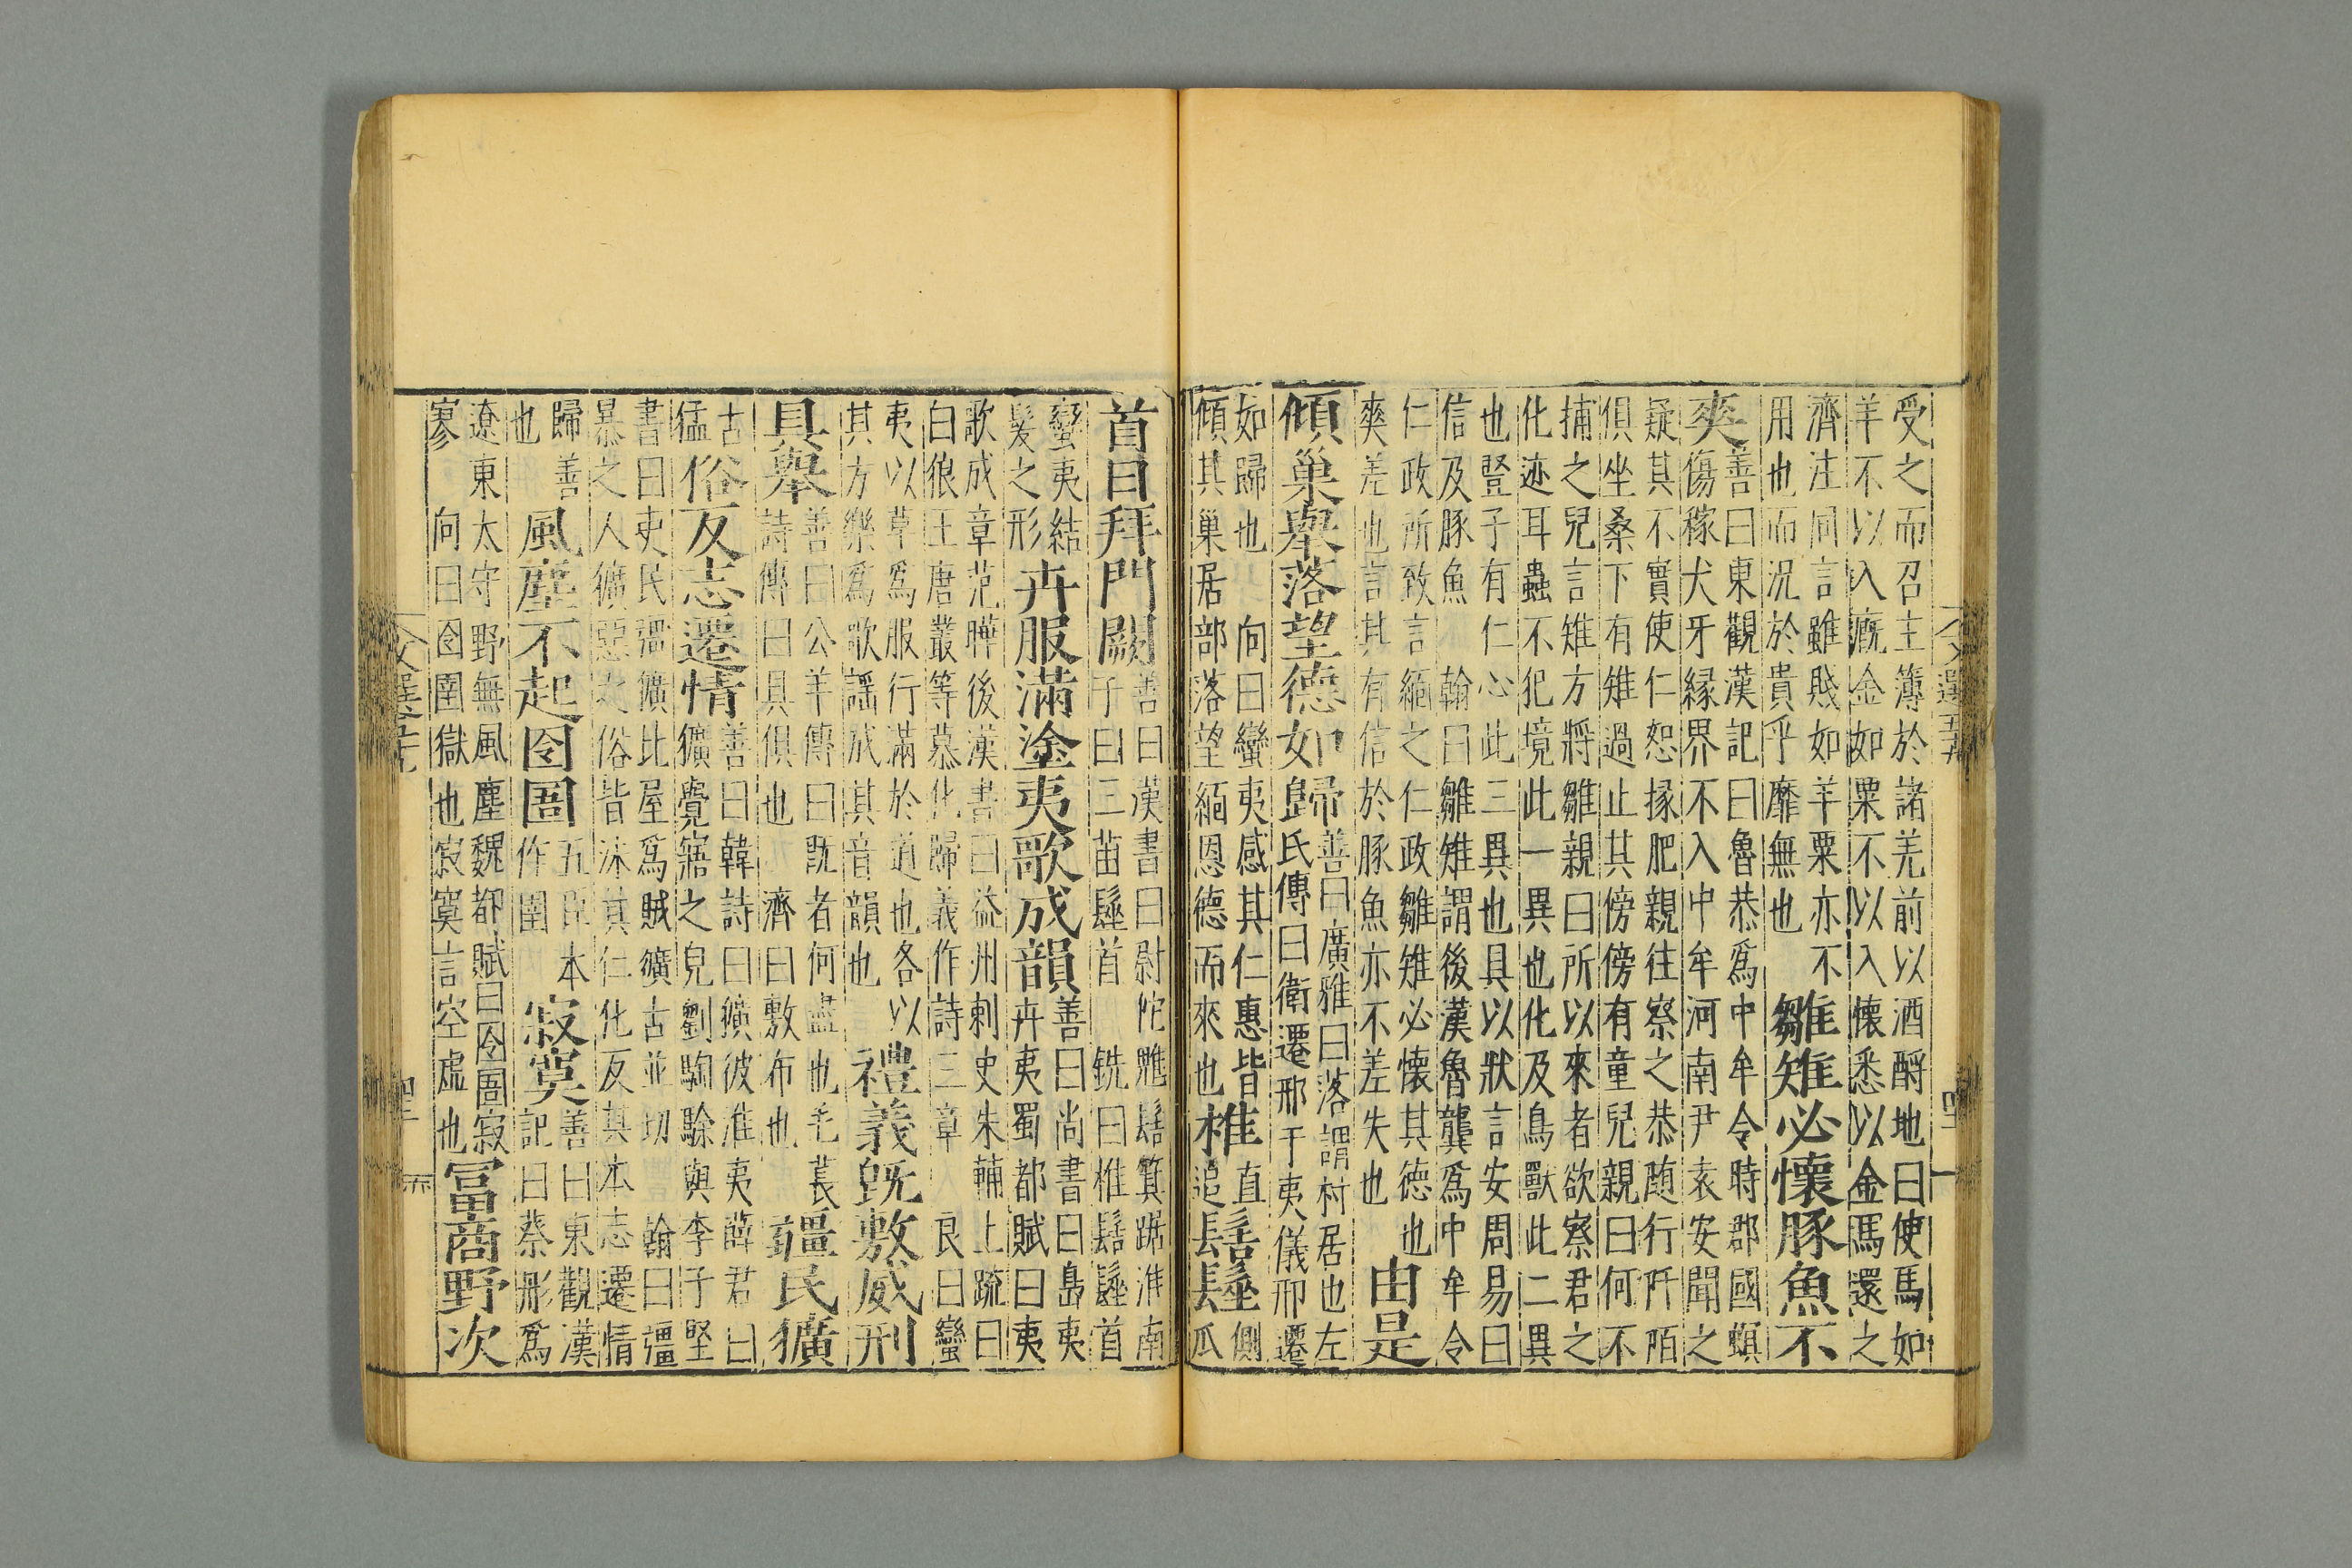 受之而召主簿於諸羌前以酒酹地曰使馬如
羊不以入廐金如粟不以入懷悉以金馬還之
濟注同言雖賤如羊粟亦不
用也而況於貴乎靡無也
雛雉必懷豚魚不
爽
善曰東觀漢記曰魯恭爲中牟令時郡國螟
傷稼犬牙縁界不入中牟河南尹袁安聞之
疑其不實使仁恕掾肥親往察之恭随行阡陌
俱坐桑下有雉過止其傍傍有童兒親曰何不
捕之兒言雉方將雛親曰所以來者欲察君之
化迹耳蟲不犯境此一異也化及鳥獸此二異
也豎子有仁心此三異也具以狀言安周易曰
信及豚魚 翰曰雛雉謂後漢魯龔爲中牟令
仁政所致言緬之仁政雛雉必懷其德也
爽差也言其有信於豚魚亦不差失也
由是
傾巢舉落望德如歸
善曰廣雅曰落謂村居也左
氏傳曰衛遷邢于夷儀邢遷
如歸也 向曰蠻夷感其仁惠皆
傾其巢居部落望緬恩德而來也
椎
直
追
髻髽
側
瓜
首日拜門闕
善曰漢書曰尉佗魋髻箕踞淮南
子曰三苗髽首 銑曰椎髻髽首
蠻夷結
髮之形
卉服滿塗夷歌成韻
善曰尚書曰島夷
卉夷蜀都賦曰夷
歌成章范曄後漢書曰益州刺史朱輔上疏曰
白狼王唐叢等慕化歸義作詩三章 良曰蠻
夷以草爲服行滿於道也各以
其方樂爲歌謡成其音韻也
禮義既敷威刑
具舉
善曰公羊傳曰既者何盡也毛萇
詩傳曰具俱也 濟曰敷布也
疆民獷
古
猛
俗反志遷情
善曰韓詩曰獷彼淮夷薛君曰
獷覺寤之皃劉騊駼與李子堅
書曰吏民彊獷比屋爲賊獷古並切 翰曰彊
暴之人獷惡之俗皆沐其仁化反其本志遷情
歸善
也
風塵不起囹圄
五臣本
作圉
寂寞
善曰東觀漢
記曰蔡彤爲
遼東太守野無風塵魏都賦曰囹圄寂
寥 向曰囹圉獄也寂寞言空虚也
冨商野次